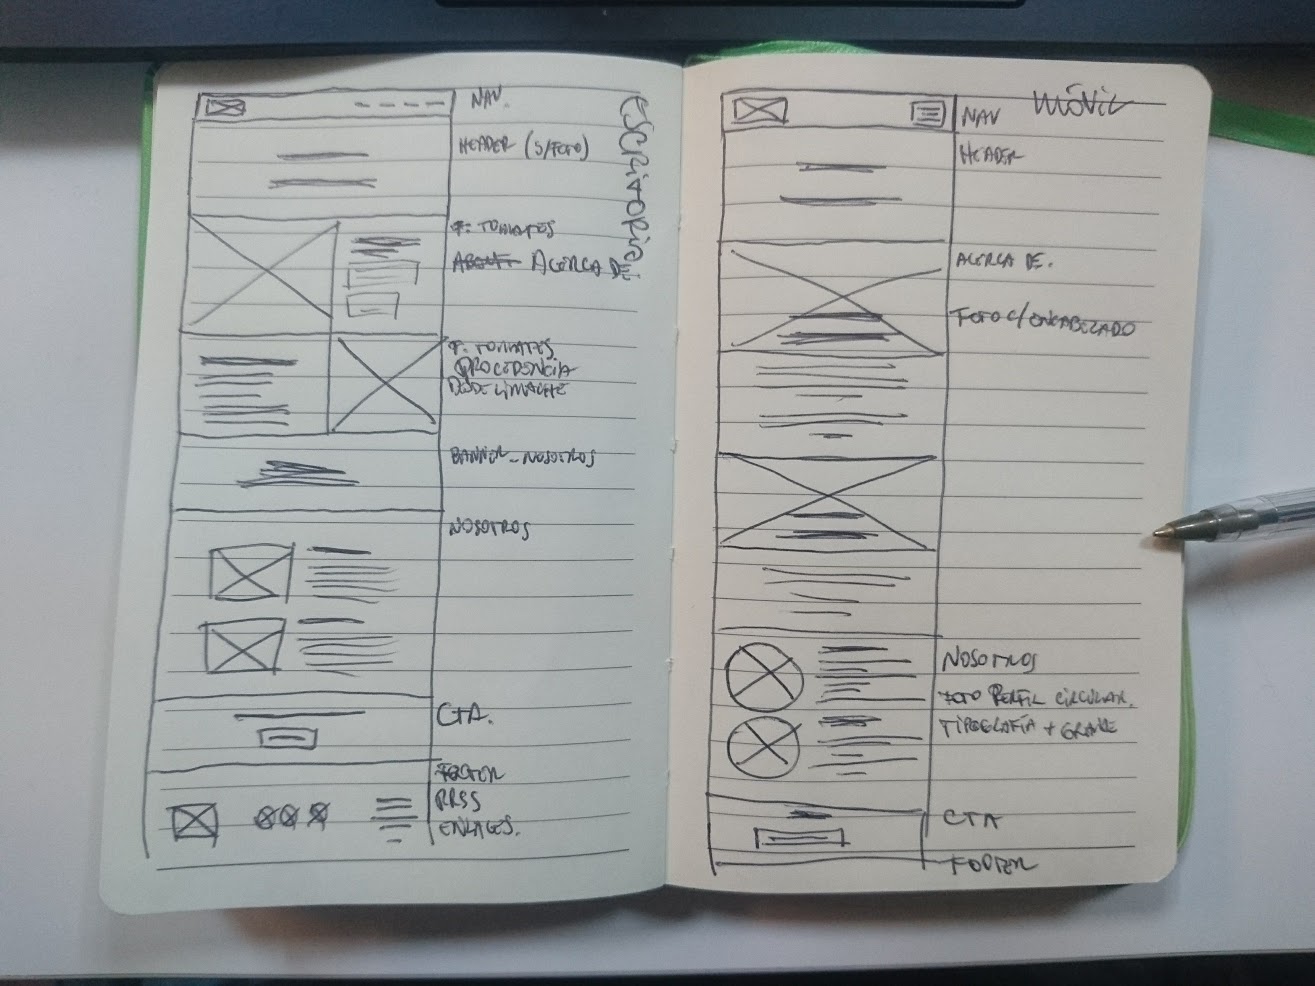 ESCRITORIO
NAV.
HEADER (S/FOTO)
F. TOMATES
ABOUT ACERCA DE
F. TOMATES
PROCEDENCIA
DESDE LIMACHE
BANNER - NOSOTROS
NOSOTROS
CTA.
FOOTER
RRSS
ENLACES.
MÓVIL
NAV
HEADER
ACERCA DE.
FOTO C/ENCABEZADO
NOSOTROS
FOTO PERFIL CIRCULAR.
TIPOGRAFÍA + GRANDE
CTA
FOOTER